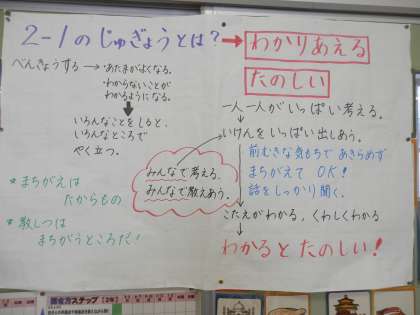 2-1のじゅぎょうとは?→わかりあえる
たのしい
べんきょうする→・あたまがよくなる。
・わからないことが
わかるようになる。
いろんなことをしると、
いろんなところで
やく立つ。
*まちがえは
たからもの
*教しつは
まちがうところだ!
みんなで考える。
みんなで教えあう。
一人一人がいっぱい考える。
いけんをいっぱい出しあう。
前むきな気もちであきらめず
まちがえてOK!
話をしっかり聞く。
こたえがわかる、くわしくわかる
わかるとたのしい!